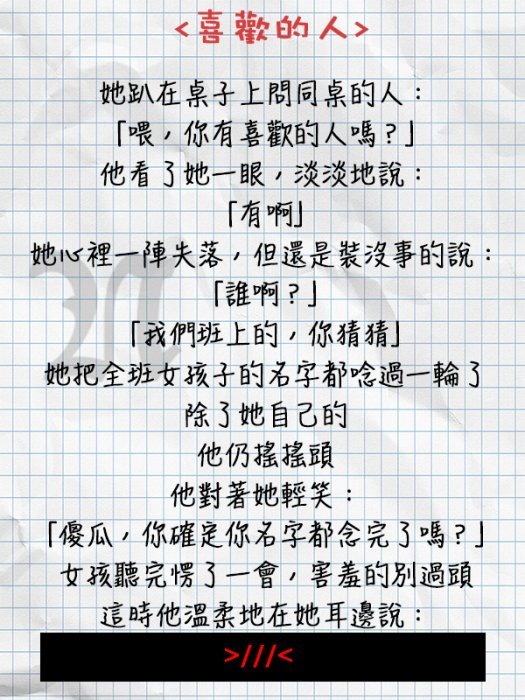 <喜歡的人>
她趴在桌子上問同桌的人：
「喂，你有喜歡的人嗎？」
他看了她一眼，淡淡地說：
「有啊」
她心裡一陣失落，但還是裝沒事的說：
「誰啊？」
「我們班上的，你猜猜」
她把全班女孩子的名字都唸過一輪了
除了她自己的
他仍搖搖頭
他對著她輕笑：
「傻瓜，你確定你名字都念完了嗎？」
女孩聽完愣了一會，害羞的別過頭
這時他溫柔地在她耳邊說：
>///<